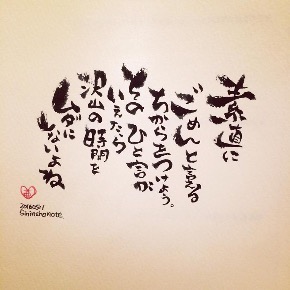 素直に
ごめんと言える
ちからをつけよう。
そのひと言が
いえたら
沢山の時間を
ムダに
しないよね
20160511
GihinshaNote